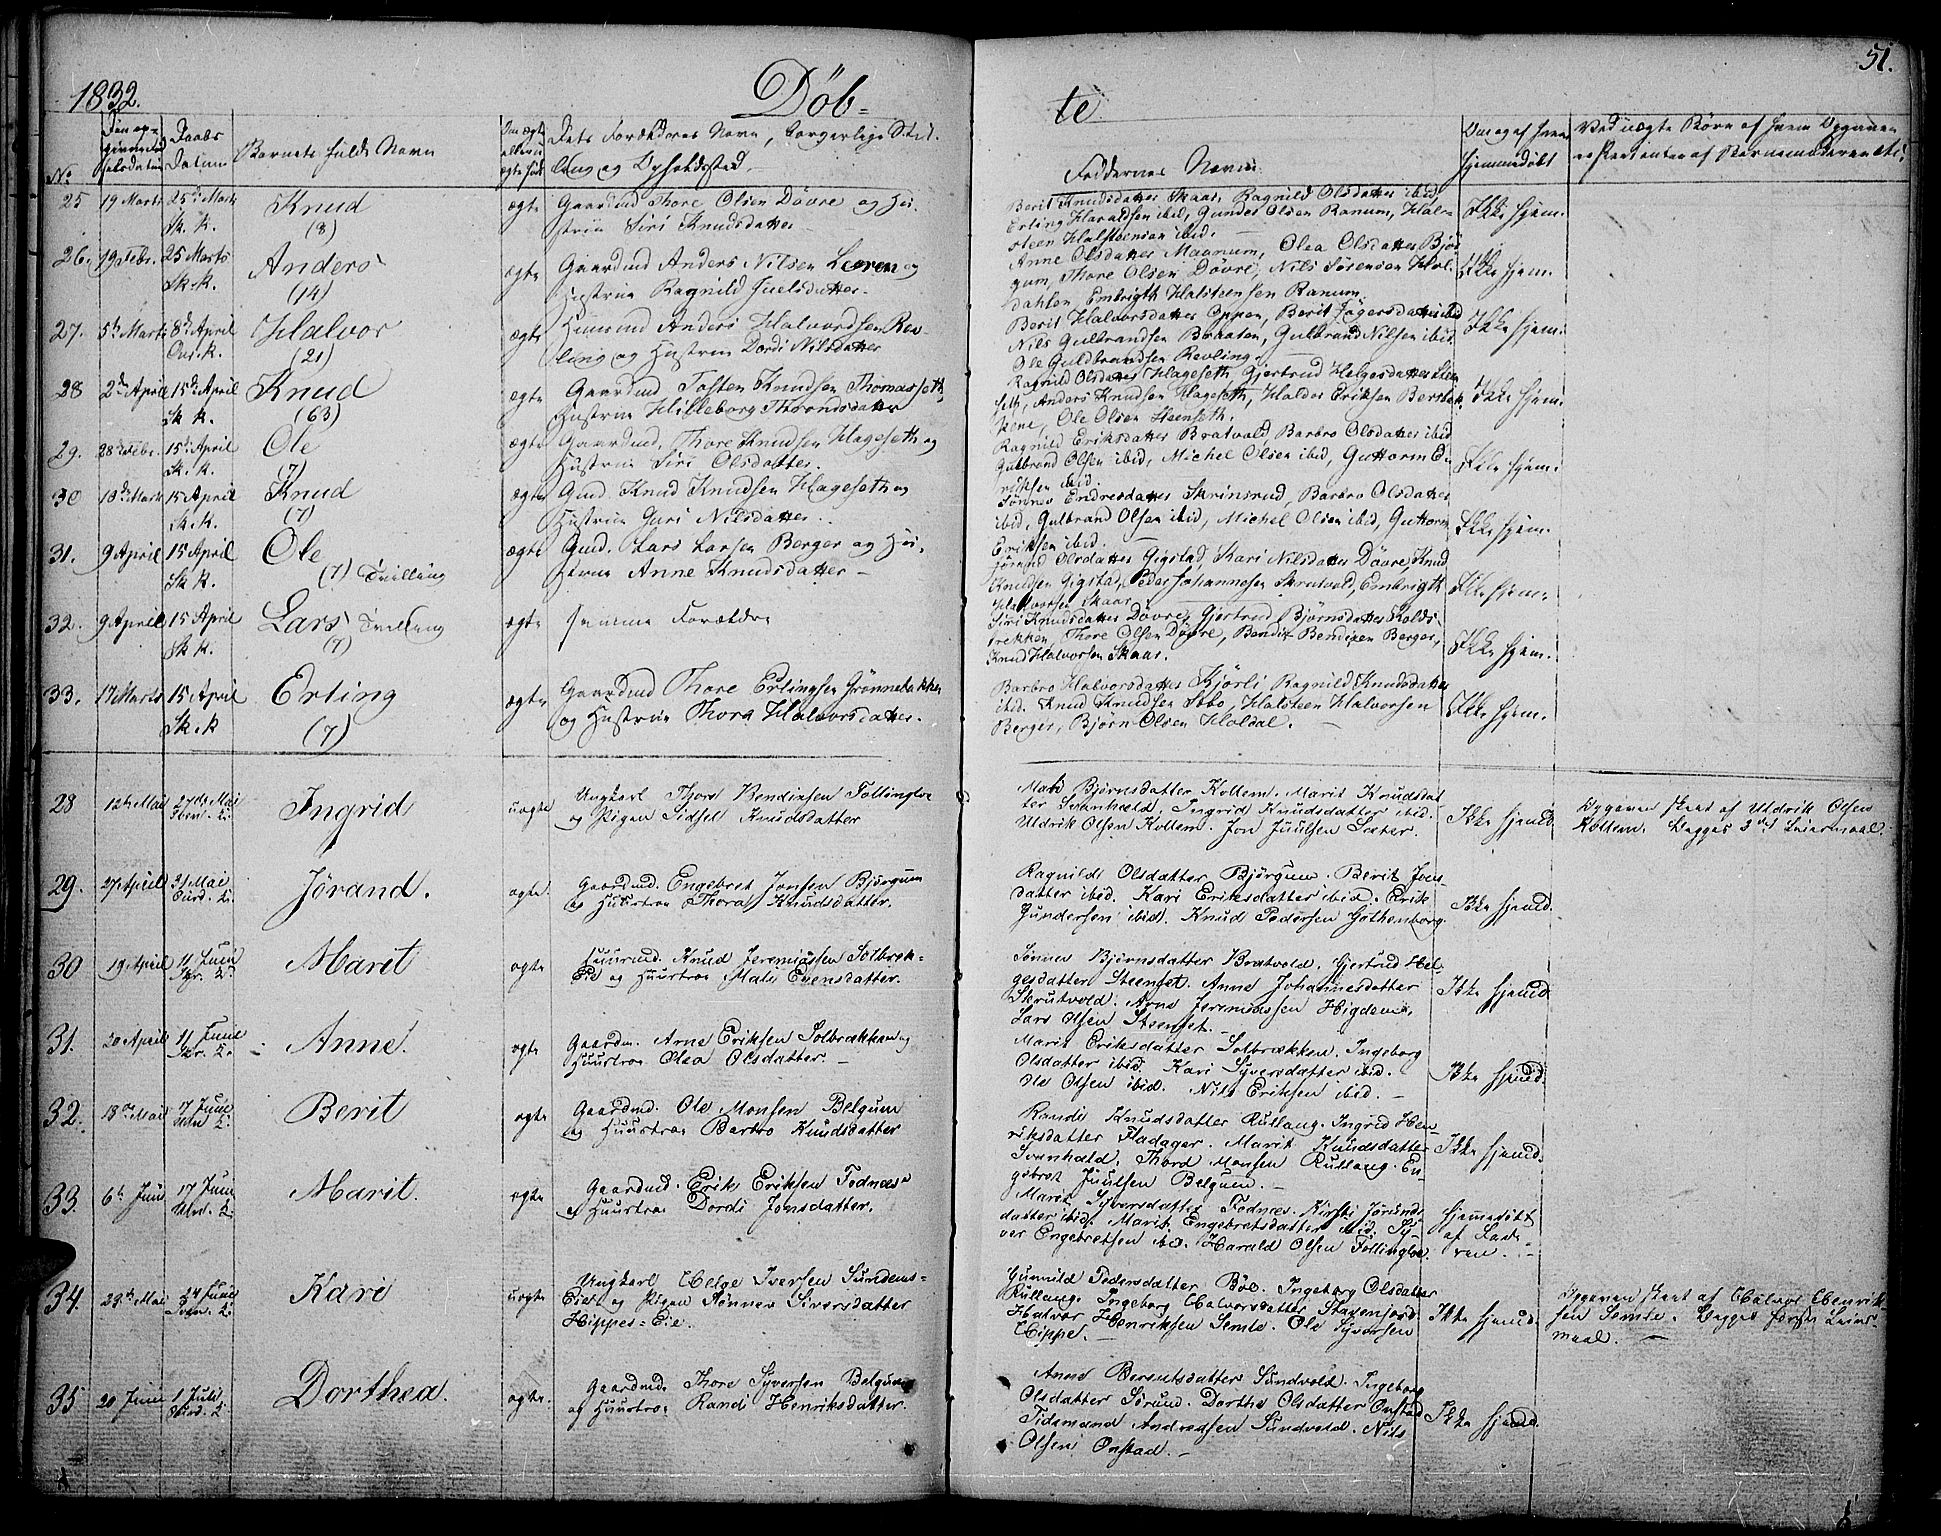 1832.
Döb-
te
51.
No
Daabs
Datum
Barnets fulde Navn
Dets Forældres Navn, borgerlige Stil-
ling og Opholdssted.
Faddernes Navn.
25
19 Marts
25de Marts
Sk. K.
Knud
(8)
ægte
Gaardmd Thore Olsen Dövre og Hu-
strue Siri Knudsdatter
Berit Knudsdatter Skaar, Ragnild Olsdatter ibid,
Erling Haraldsen ibid, Gunder Olsen Ranum, Hal-
steen Halsteensen ibid.
Ikke hjem.
26.
19 Febr.
25 Marts
Sk. K.
Anders
(14)
ægte
Gaardmd Anders Nilsen Leeren og
Hustrue Ragnild Juelsdatter
Anne Olsdatter Magnum, Olea Olsdatter Björ
gum, Thore Olsen Dövre, Nils Sörensen Hal-
dahlen, Embrigth Halsteensen Ranum
Ikke hjem.
27.
5te Marts
8de April
Halvor
(21)
ægte
Huusmd Anders Halvordsen Rev-
ling og Hustrue Dordi Nilsdatter
Berit Halvorsdatter Oppen, Berit Jögersdatter ibid
Nils Gulbrandsen Braaten, Gulbrand Nilsen ibid.
Ole Guldbrandsen Revling.
Ikke hjem.
28
2den April
15de April
Sk K.
Knud
(63)
ægte
Gaardmd Tosten Knudsen Thomasseth,
Hustrue Hilleborg Throndsdatter
Ragnild Olsdatter Hageseth, Gjertrud Helgesdatter Steen
seth, Anders Knudsen Hageseth, Haldor Eriksen Bersbek
kene, Ole Olsen Steenseth.
Ikke hjem.
29.
28de Febr.
15de April
Sk. K.
Ole
(7)
ægte
Gaardmd. Thore Knudsen Hageseth og
Hustrue Siri Olsdatter.
Ragnild Eriksdatter Bratvald, Barbro Olsdatter ibid
Gulbrand Olsen ibid, Michel Olsen ibid, Guttorm E-
riksen ibid.
Ikke hjem.
30
15 April
Sk. K.
Knud
(7)
ægte
Gmd. Knud Knudsen Hageseth og
Hustrue Guri Nilsdatter.
Sönnev Endresdatter Skrinsrud, Barbro Olsdatter
ibid, Gulbrand Olsen ibid, Michel Olsen ibid, Guttorm
Eriksen ibid.
Ikke hjem.
31.
9 April
15 April
Sk K.
Ole
(7) Tvilling
ægte
Gmd. Lars Larsen Berger og Hu-
strue Anne Knudsdatter
Jörand Olsdatter Gigstad, Kari Nilsdatter Dövre, Knud
Knudsen Gigstad, Peder Johannesen Skrutvold, Embrigth
Halvorsen Skaar.
Ikke hjem.
32.
9 April
15 April
Sk K.
Lars Tvilling
(7)
ægte
samme Forældre
Siri Knudsdatter Dövre, Gjertrud Björnsdatter Kolds
trekken, Thore Olsen Dövre, Bendik Bendixen Berger,
Knud Halvorsen Skaar.
Ikke hjem.
33.
17 Marts
15 April
Sk. K
Erling
(7)
ægte
Gaardmd Thore Erlingsen Grönnebakken
og Hustrue Thora Halvorsdatter.
Barbro Halvorsdatter Kjörli Ragnild Knudsdatter
ibid. Knud Knudsen Sebo, Halsteen Halvorsen
Berger, Björn Olsen Holdal.
Ikke hjem.
28
12te Mai
27de Mai
Ingrid
uægte
Ungkarl Thord Bendixsen Tollingloe
og Pigen Sidsel Knudsdatter
Mari Björnsdatter Kollem. Marit Knudsdat-
ter Svanhæld. Ingrid Knudsdatter ibid.
Uldrik Olsen Kollem. Jon Juulsen Sæter.
Ikke hjemd.
Opgaven skeet af Uldrik Olsen
Kollem. Begges 3die Leiermaal.
29.
27 April
31 Mai
Jörand.
ægte.
Gaardmd. Engebret Jonsen Björgum
og Huustroe Thora Knudsdatter.
Ragnild Olsdatter Björgum. Berit Jons-
datter ibid. Kari Eriksdatter ibid. Erik
Gundersen ibid. Knud Pedersen Gothenborg.
Ikke hjemd.
30
19 April
11 Juni
Marit
ægte
Huusmd. Knud Jeremiassen Solbræk-
Eie og Huustroe Mari Evensdatter.
Sönnev Björnsdatter Bratvold. Gjertrud Hel-
gesdatter Steenset. Anne Johannesdatter
Skrutvold. Arne Jeremiassen Higdem.
Lars Olsen Steenset.
Ikke hjemd.
31.
20 April
11 Juni
Anne.
ægte
Gaardm. Arne Eriksen Solbrækken og
Huustroe Olea Olsdatter.
Marit Eriksdatter Solbrækken. Ingeborg
Olsdatter ibid. Kari Syversdatter ibid.
Ole Olsen ibid. Nils Eriksen ibid.
Ikke hjemd.
32.
18de Mai
17 Juni
Berit
ægte
Gaardmd. Ole Monsen Belgum
og Huustroe Barbro Knudsdatter
Randi Knudsdatter Rullang. Ingrid Hen-
riksdatter Fladager. Marit Knudsdatter
Svanhæld. Thord Monsen Rullang. En
gebret Juulsen Belgum.
Ikke hjemd.
33.
6te Juni
17 Juni
Marit.
ægte
Gaardmd. Erik Eriksen Fodnæs
og Huustroe Dordi Jonsdatter.
Marit Syversdatter Fodnæs. Kirsti Jörunds-
datter ibid. Marit Engebretsdatter ibid. Sy-
ver Engebretsen ibid. Harald Olsen Follingloe.
Hjemedöbt
af Fade-
ren.
34.
24 Juni
Kari
uægte
Ungkarl Helge Iversen Sundems-
Eie og Pigen Sönnev Siversdatter
Hippes-Eie.
Gunild Pedersdatter Böe. Ingeborg Olsdatter
Rullang. Ingeborg Halvorsdatter Stavenjord.
Halvor Henriksen Semle. Ole Syversen
Hippe.
Ikke hjemd.
Opgaven skeet af Halvor Henrik-
sen Semle. Begges förste Leier-
maal.
35
20 Juni
1 Juli
Dorthea.
ægte.
Gaardmd. Thore Syversen Belgum
og Huustroe Randi Henriksdatter.
Anne Berentsdatter Sundvold. Ingeborg
Olsdatter Sörum. Dorthe Olsdatter Onstad
Tidemand Andreasen Sundvold. Nils
Olsen Onstad.
Ikke hjemd.